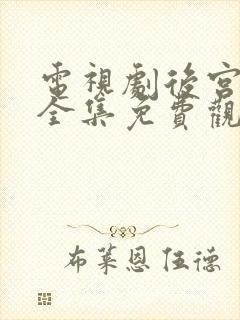 電視劇後宮
全集免費觀
布萊恩伍德